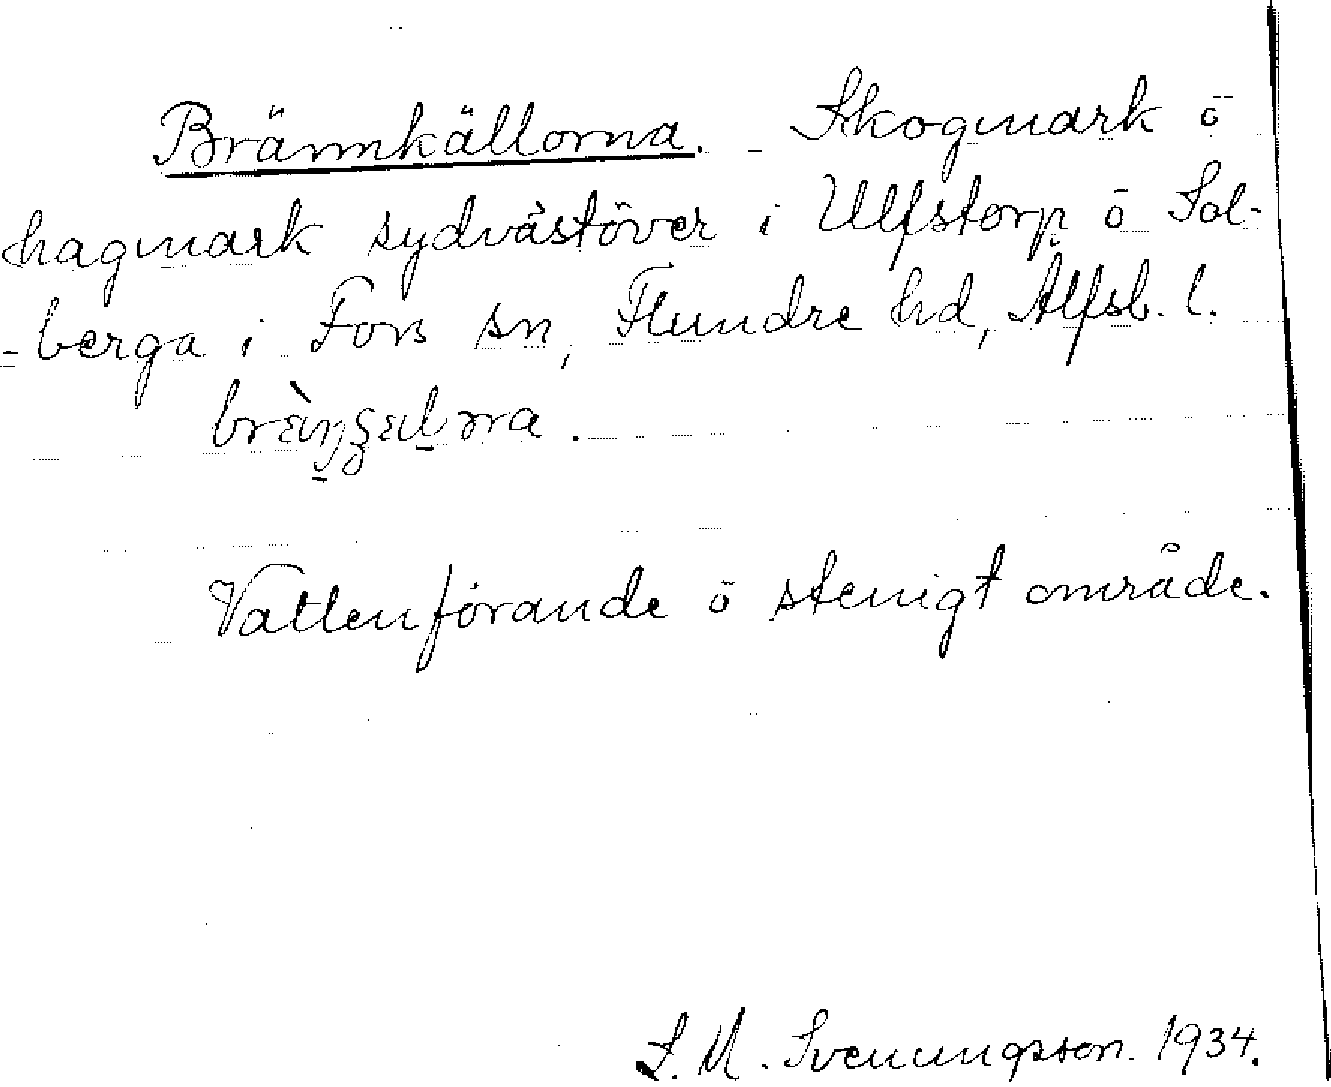 Brännkällorna. Skogmark ö
hagmark sydvästöver i Ulfstorp ö Sol-
berga i Fors sn, Flundre hd, Älfsb. l.
Vattenförande ö stenigt område.
S. M. Svenungsson. 1934.